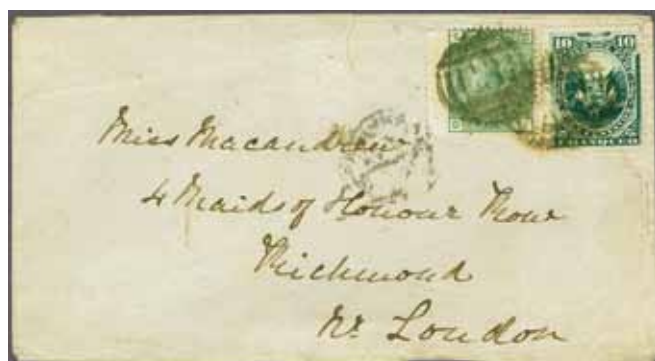 10 10
Miss Macandrew
4 Maids of Honour Row
Richmond
Nr London